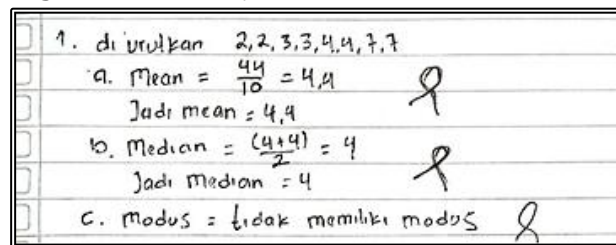 1. diurutkan 2,2,3,3,4,4,7,7
a. Mean = 44/10 = 4,4
Jadi mean = 4,4
b. Median = (4+4)/2 = 4
Jadi Median = 4
c. Modus = tidak memiliki modus